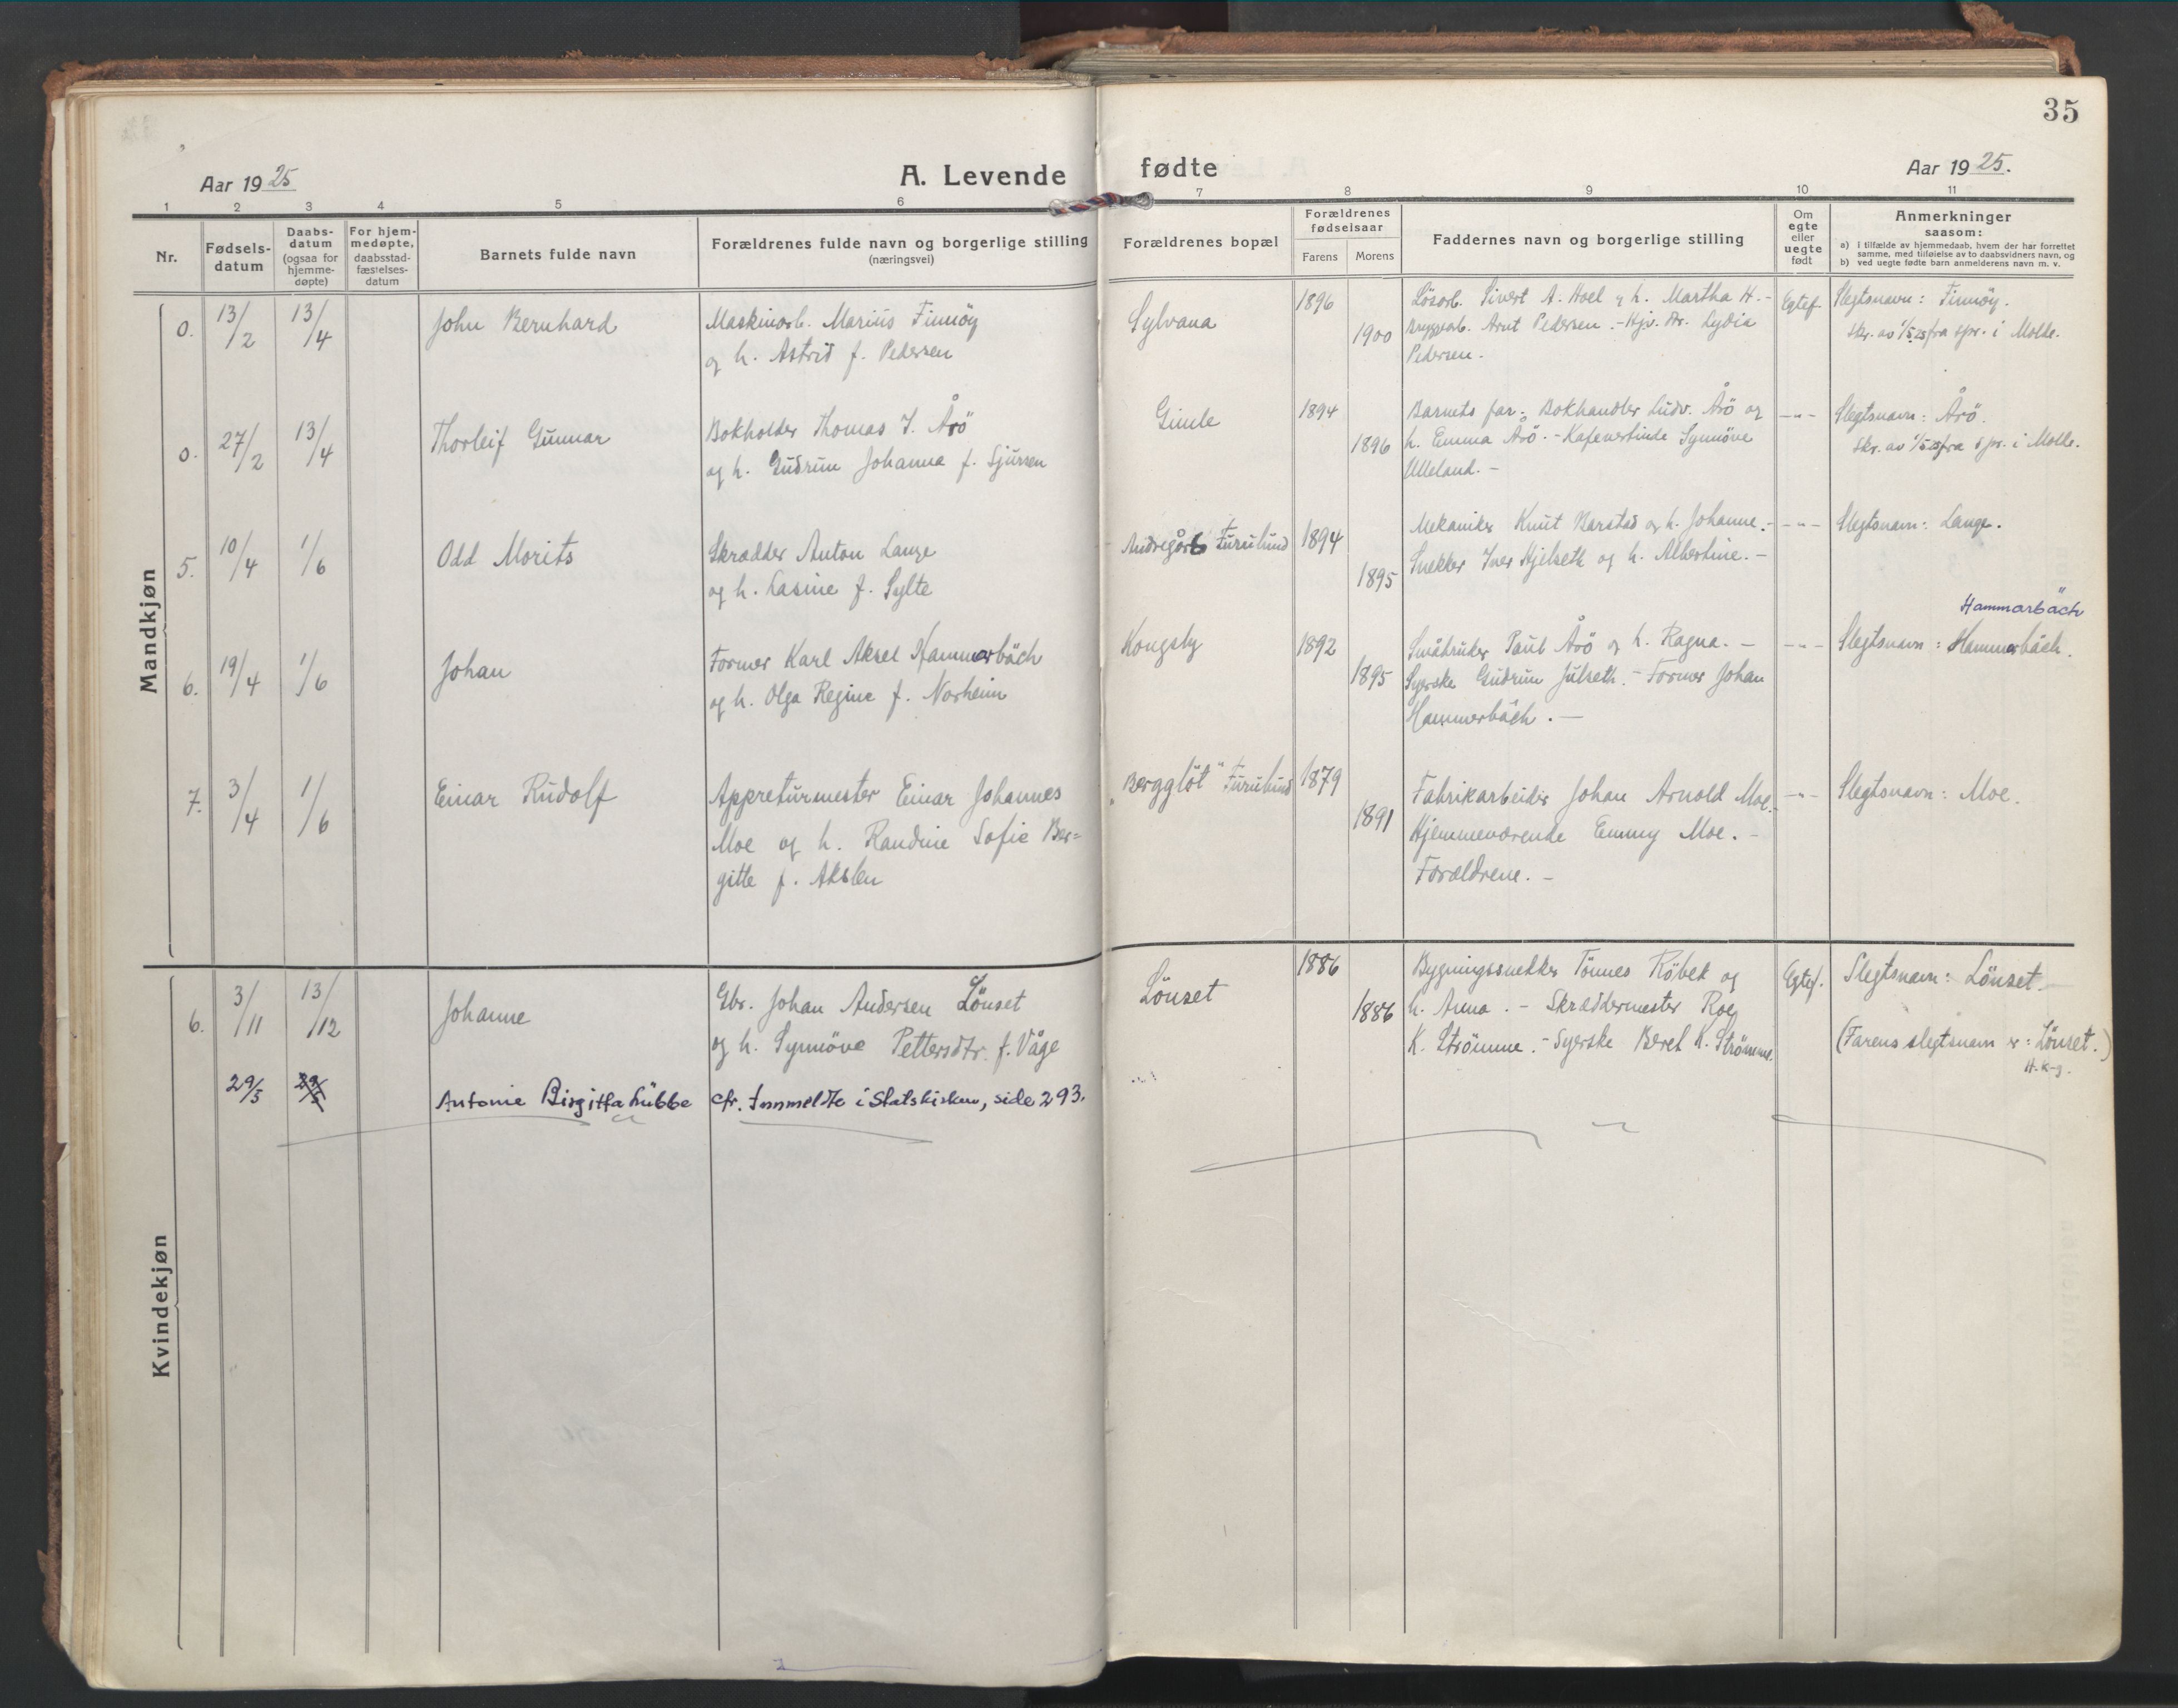 35
Aar 1925
A. Levende fødte
Aar 1925.
1 2 3 4 5 6 7 8 9 10 11
Nr.
Fødsels-
datum
Daabs-
datum
(ogsaa for
hjemme-
døpte)
For hjem-
medøpte,
daabsstad-
fæstelses-
datum
Barnets fulde navn
Forældrenes fulde navn og borgerlige stilling
(næringsvei)
Forældrenes bopæl
Forældrenes
fødselsaar
Farens Morens
Faddernes navn og borgerlige stilling
Om
egte
eller
uegte
født
Anmerkninger
saasom:
a) i tilfælde av hjemmedaab, hvem der har forrettet
samme, med tilføielse av to daabsvidners navn, og
b) ved uegte fødte barn anmelderens navn m. v.
Mandkjøn
0. 13/2 13/4
John Bernhard
Maskinarb. Marius Finnöy
og h. Astrid f. Pedersen
Sylvana
1896
1900
Lösarb. Sivert A. Hoel og h. Martha H. -
Bryggearb. Arnt Pedersen. - Hjv. Fr. Lydia
Pedersen.
Egtef.
Slegtsnavn: Finnöy.
Skr. av 1/5 25 fra spr. i Molde.
0. 27/2 13/4
Thorleif Gunnar
Bokholder Thomas J. Årö
og h. Gudrun Johanna f. Sjursen
Gimle
1894
1896
Barnets far. Bokhandler Ludv. Årö og
h. Emma Årö. - Kafevertinde Synnöve
Ulleland. -
-"-
Slegtsnavn: Årö.
Skr. av 1/5 25 fra spr. i Molde.
5. 10/4 1/6
Odd Morits
Skrædder Anton Lange
og h. Lasine f. Sylte
Andregård Furulund
1894
1895
Mekaniker Knut Barstad og h. Johanne. -
Snekker Iver Hjelseth og h. Albertine. -
-"-
Slegtsnavn: Lange.
6. 19/4 1/6
Johan
Former Karl Aksel Hammarbäch
og h. Olga Regine f. Norheim
Kongsby
1892
1895
Småbruker Paul Årö og h. Ragna. -
Syerske Gudrun Julseth. - Former Johan
Hammerbäch. -
-"-
Hammarbäch
Slegtsnavn: Hammarbäch.
7. 3/4 1/6
Einar Rudolf
Appreturmester Einar Johannes
Moe og h. Randine Sofie Ber=
gitte f. Akslen
"Bergglöt" Furulund
1879
1891
Fabrikarbeider Johan Arnold Moe. -
Hjemmeværende Emmy Moe. -
Forældrene. -
-"-
Slegtsnavn: Moe.
Kvindekjøn
6. 3/11 13/12
Johanne
Gbr. Johan Andersen Lönset
og h. Synnöve Pettersdtr. f. Våge
Lönset
1886
1886
Bygningssnekker Tönnes Röbek og
h. Anna. - Skræddermester Roe
K. Strömme. - Syerske Beret K. Strömme.
Egtef.
Slegtsnavn: Lönset.
(Farens slegtsnavn er: Lönset.)
H. K-g.
29/5 29/5
Antonie Birgitta Lübbe
cfr. Innmeldte i Statskirken, side 293.